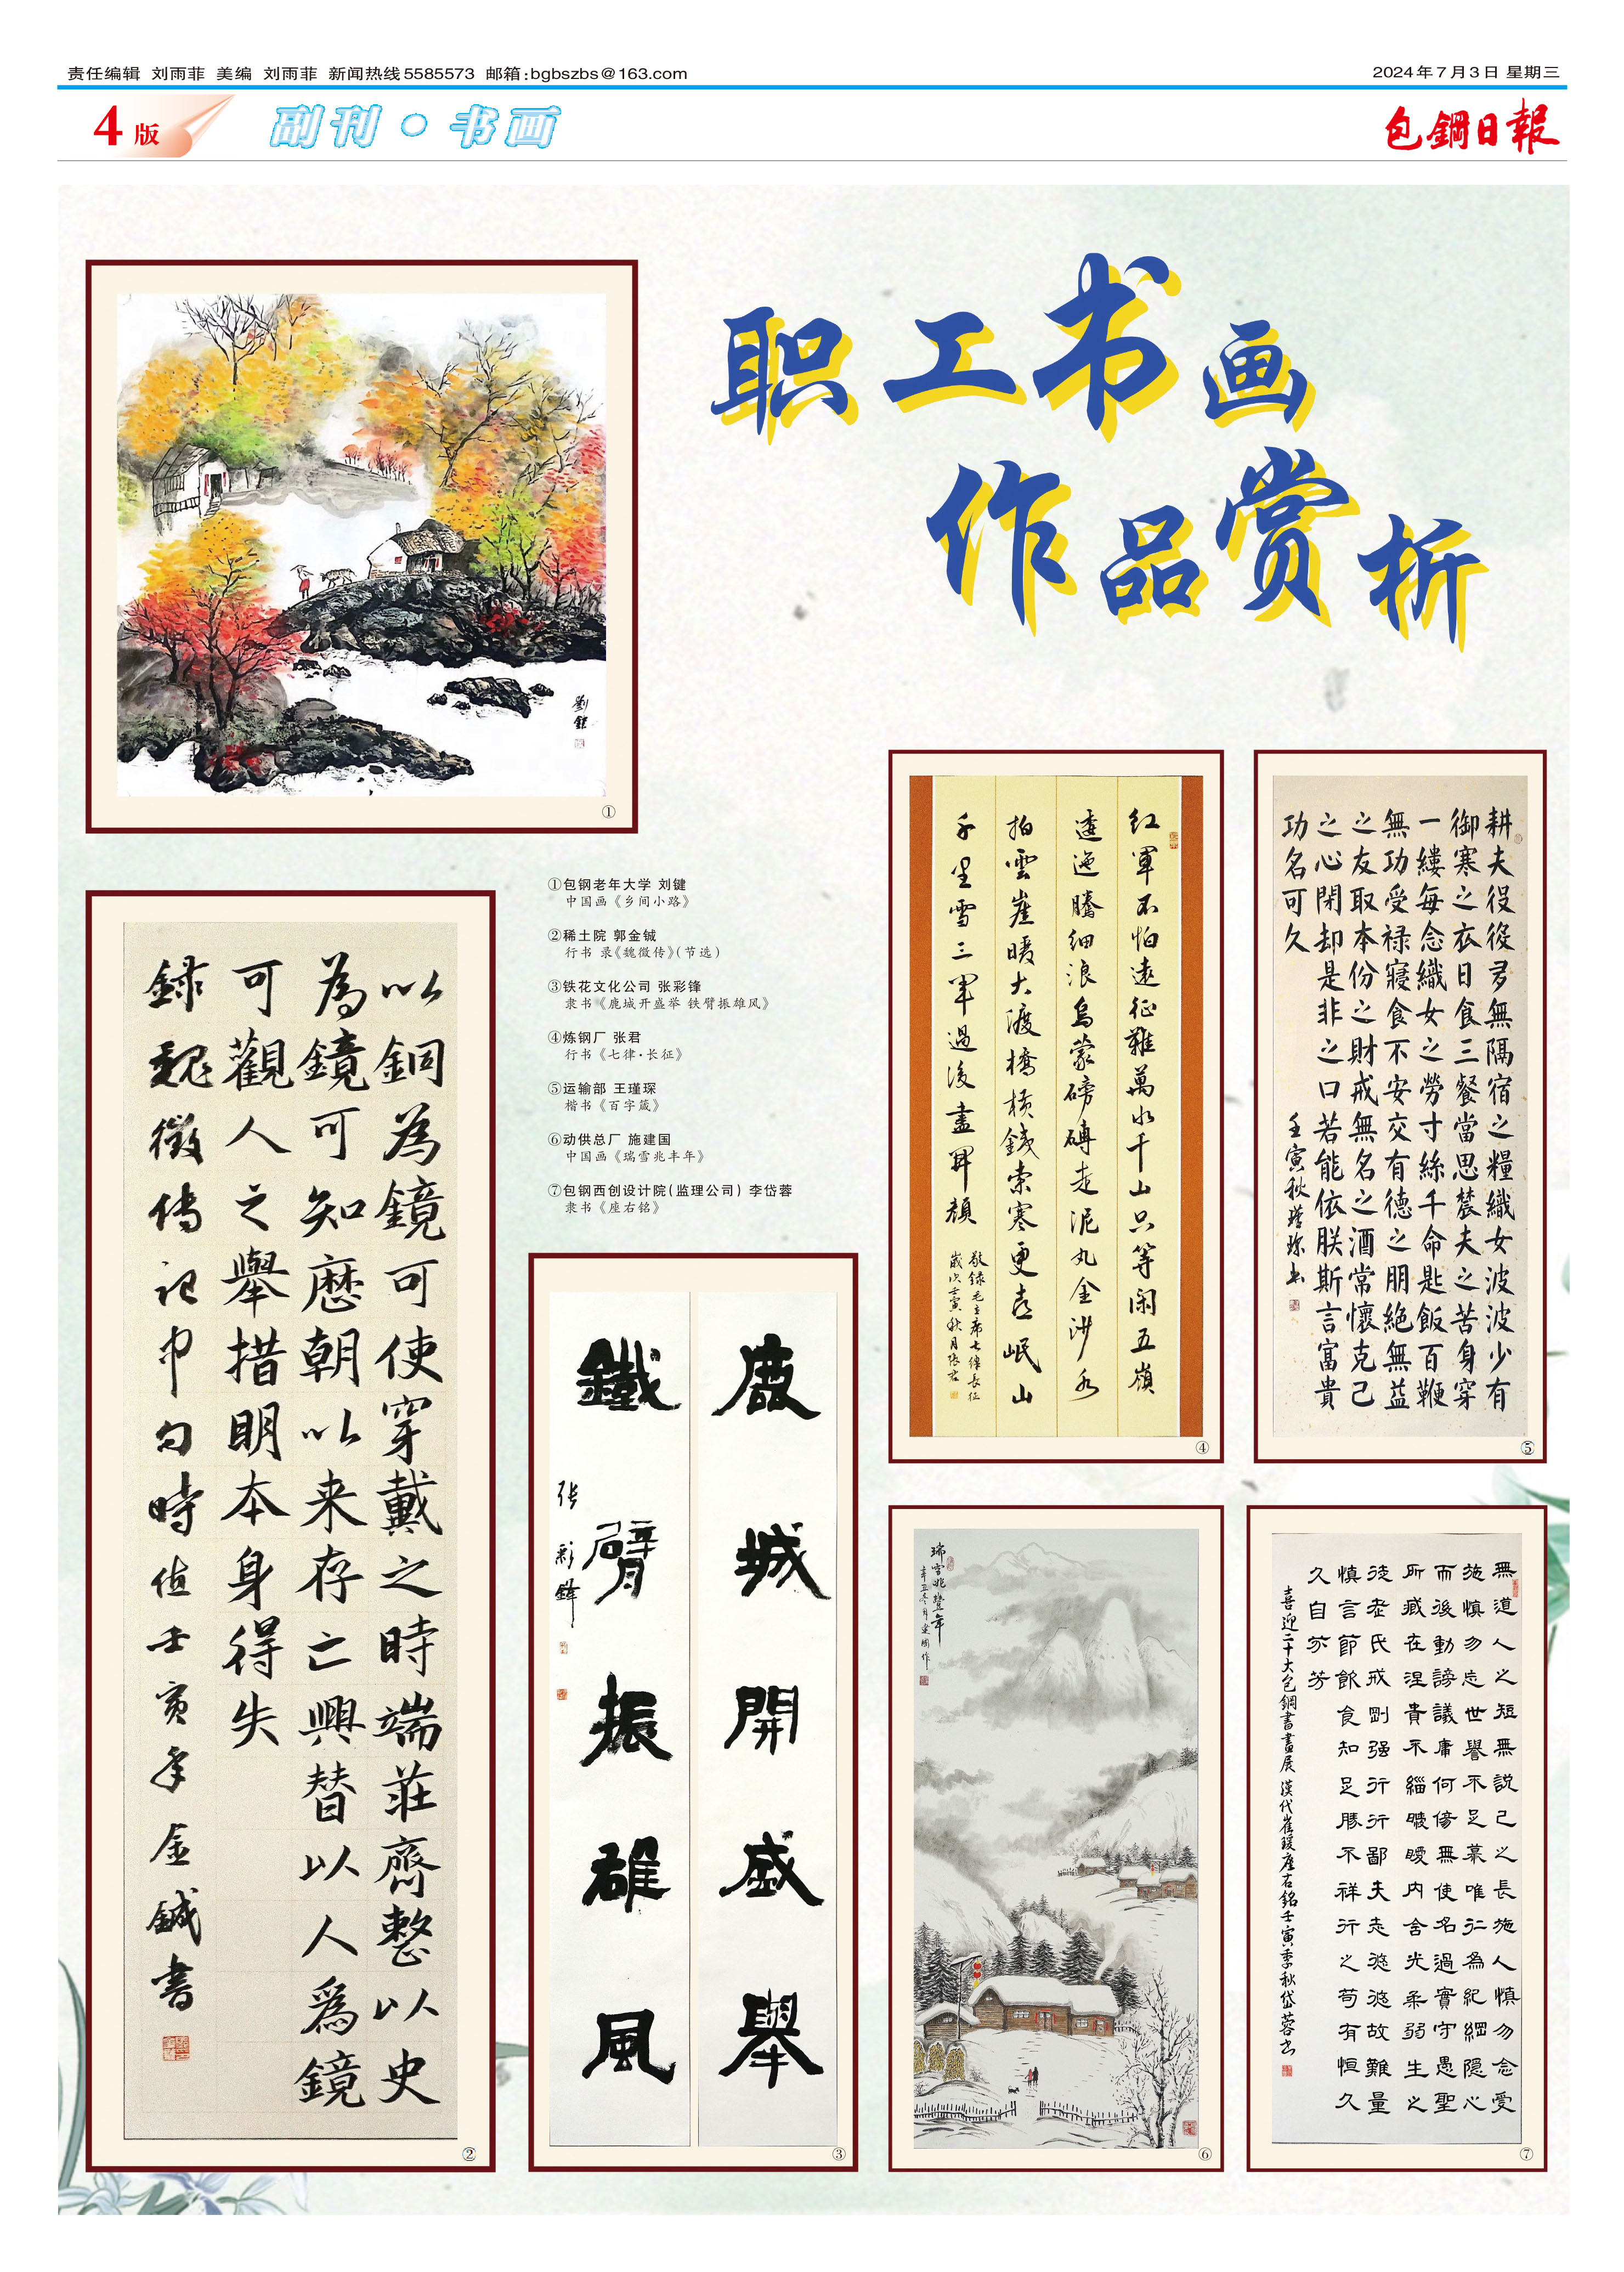 责任编辑 刘雨菲 美编 刘雨菲 新闻热线5585573 邮箱:bgbszbs@163.com
2024年7月3日 星期三
4版
副刊·书画
包鋼日報
职工书画
作品赏析
劉鍵
①
①包钢老年大学 刘键
中国画《乡间小路》
②稀土院 郭金铖
行书 录《魏徵传》(节选)
③铁花文化公司 张彩锋
隶书《鹿城开盛举 铁臂振雄风》
④炼钢厂 张君
行书《七律·长征》
⑤运输部 王瑾琛
楷书《百字箴》
⑥动供总厂 施建国
中国画《瑞雪兆丰年》
⑦包钢西创设计院(监理公司) 李岱蓉
隶书《座右铭》
以銅為鏡可使穿戴之時端莊齊整以史
為鏡可知歷朝以来存亡興替以人爲鏡
可觀人之舉措明本身得失
録魏徵傳記中句時值壬寅年金鋮書
②
鹿城開盛舉
鐵臂振雄風
张彩鋒
③
红軍不怕遠征難萬水千山只等闲五嶺
逶迤騰细浪烏蒙磅礴走泥丸金沙水
拍雲崖暖大渡橋横鐵索寒更喜岷山
千里雪三軍過後盡開顔
敬録毛主席七律長征
歲次壬寅秋月张君
④
耕夫役役多無隔宿之糧織女波波少有
御寒之衣日食三餐當思農夫之苦身穿
一縷每念織女之勞寸絲千命匙飯百鞭
無功受禄寢食不安交有德之朋絶無益
之友取本份之財戒無名之酒常懷克己
之心閉却是非之口若能依朕斯言富貴
功名可久
壬寅秋瑾琛书
⑤
瑞雪兆豐年
辛丑冬月建国作
⑥
無道人之短無説己之長施人慎勿念受
施慎勿忘世譽不足慕唯仁為紀綱隱心
而後動謗議庸何傷無使名過實守愚聖
所臧在涅貴不緇曖曖内含光柔弱生之
徒老氏戒剛强行行鄙夫志悠悠故難量
慎言節飲食知足勝不祥行之苟有恒久
久自芬芳
喜迎二十大包鋼書畫展 漢代崔瑗座右銘壬寅季秋岱蓉书
⑦